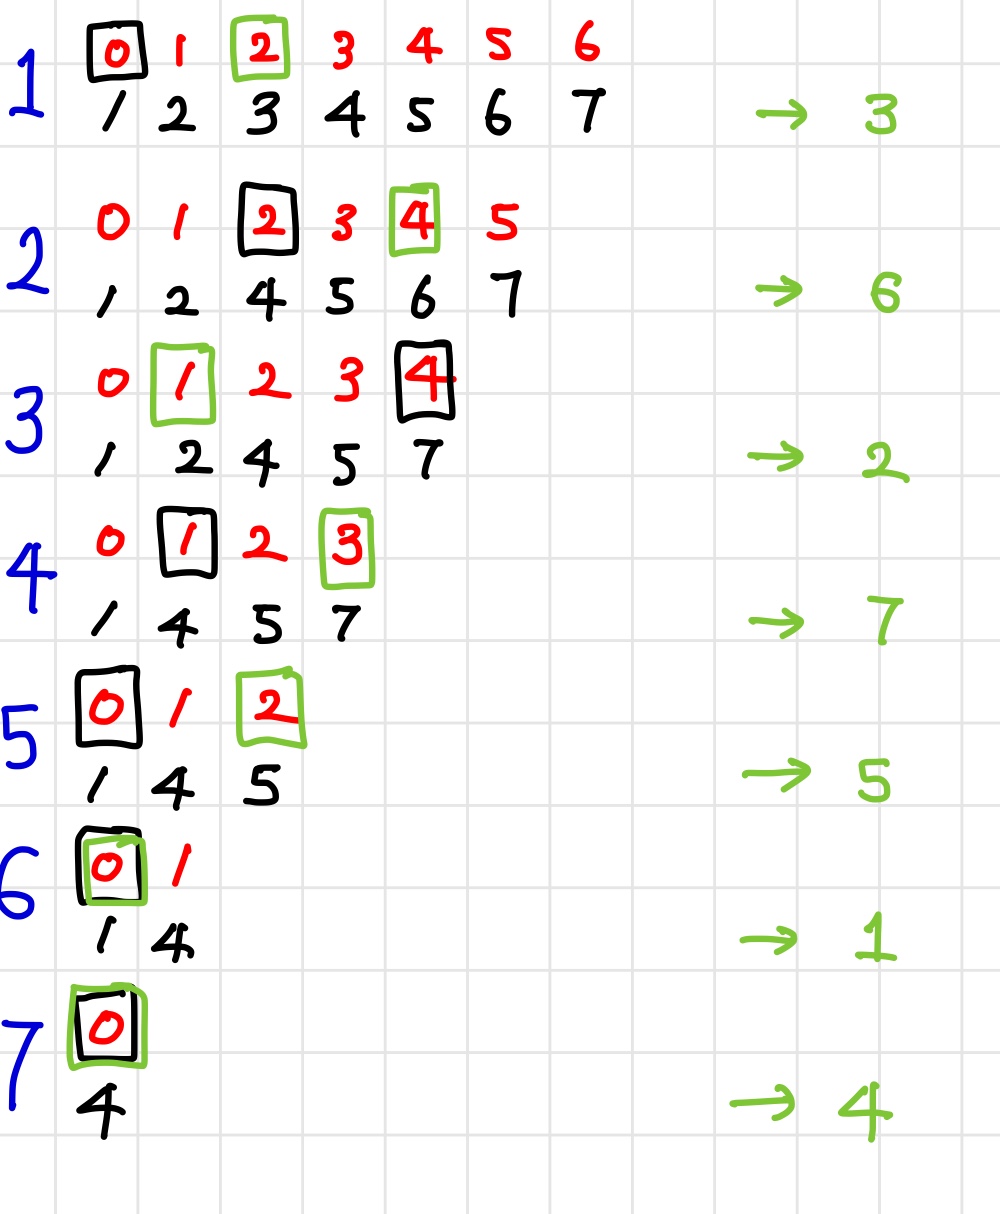 1 0 1 2 3 4 5 6
1 2 3 4 5 6 7 → 3
2 0 1 2 3 4 5
1 2 4 5 6 7 → 6
3 0 1 2 3 4
1 2 4 5 7 → 2
4 0 1 2 3
1 4 5 7 → 7
5 0 1 2
1 4 5 → 5
6 0 1
1 4 → 1
7 0
4 → 4